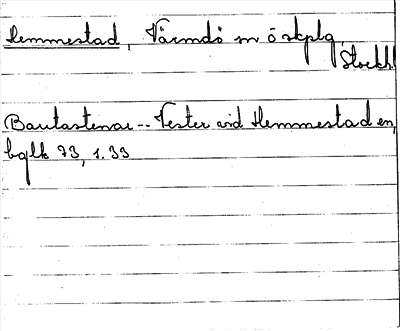 Hemmestad, Värmdö sn ö skplg,
Stockh
Bautastenar -- Vester vid Hemmestad en,
bglk 73, s. 33